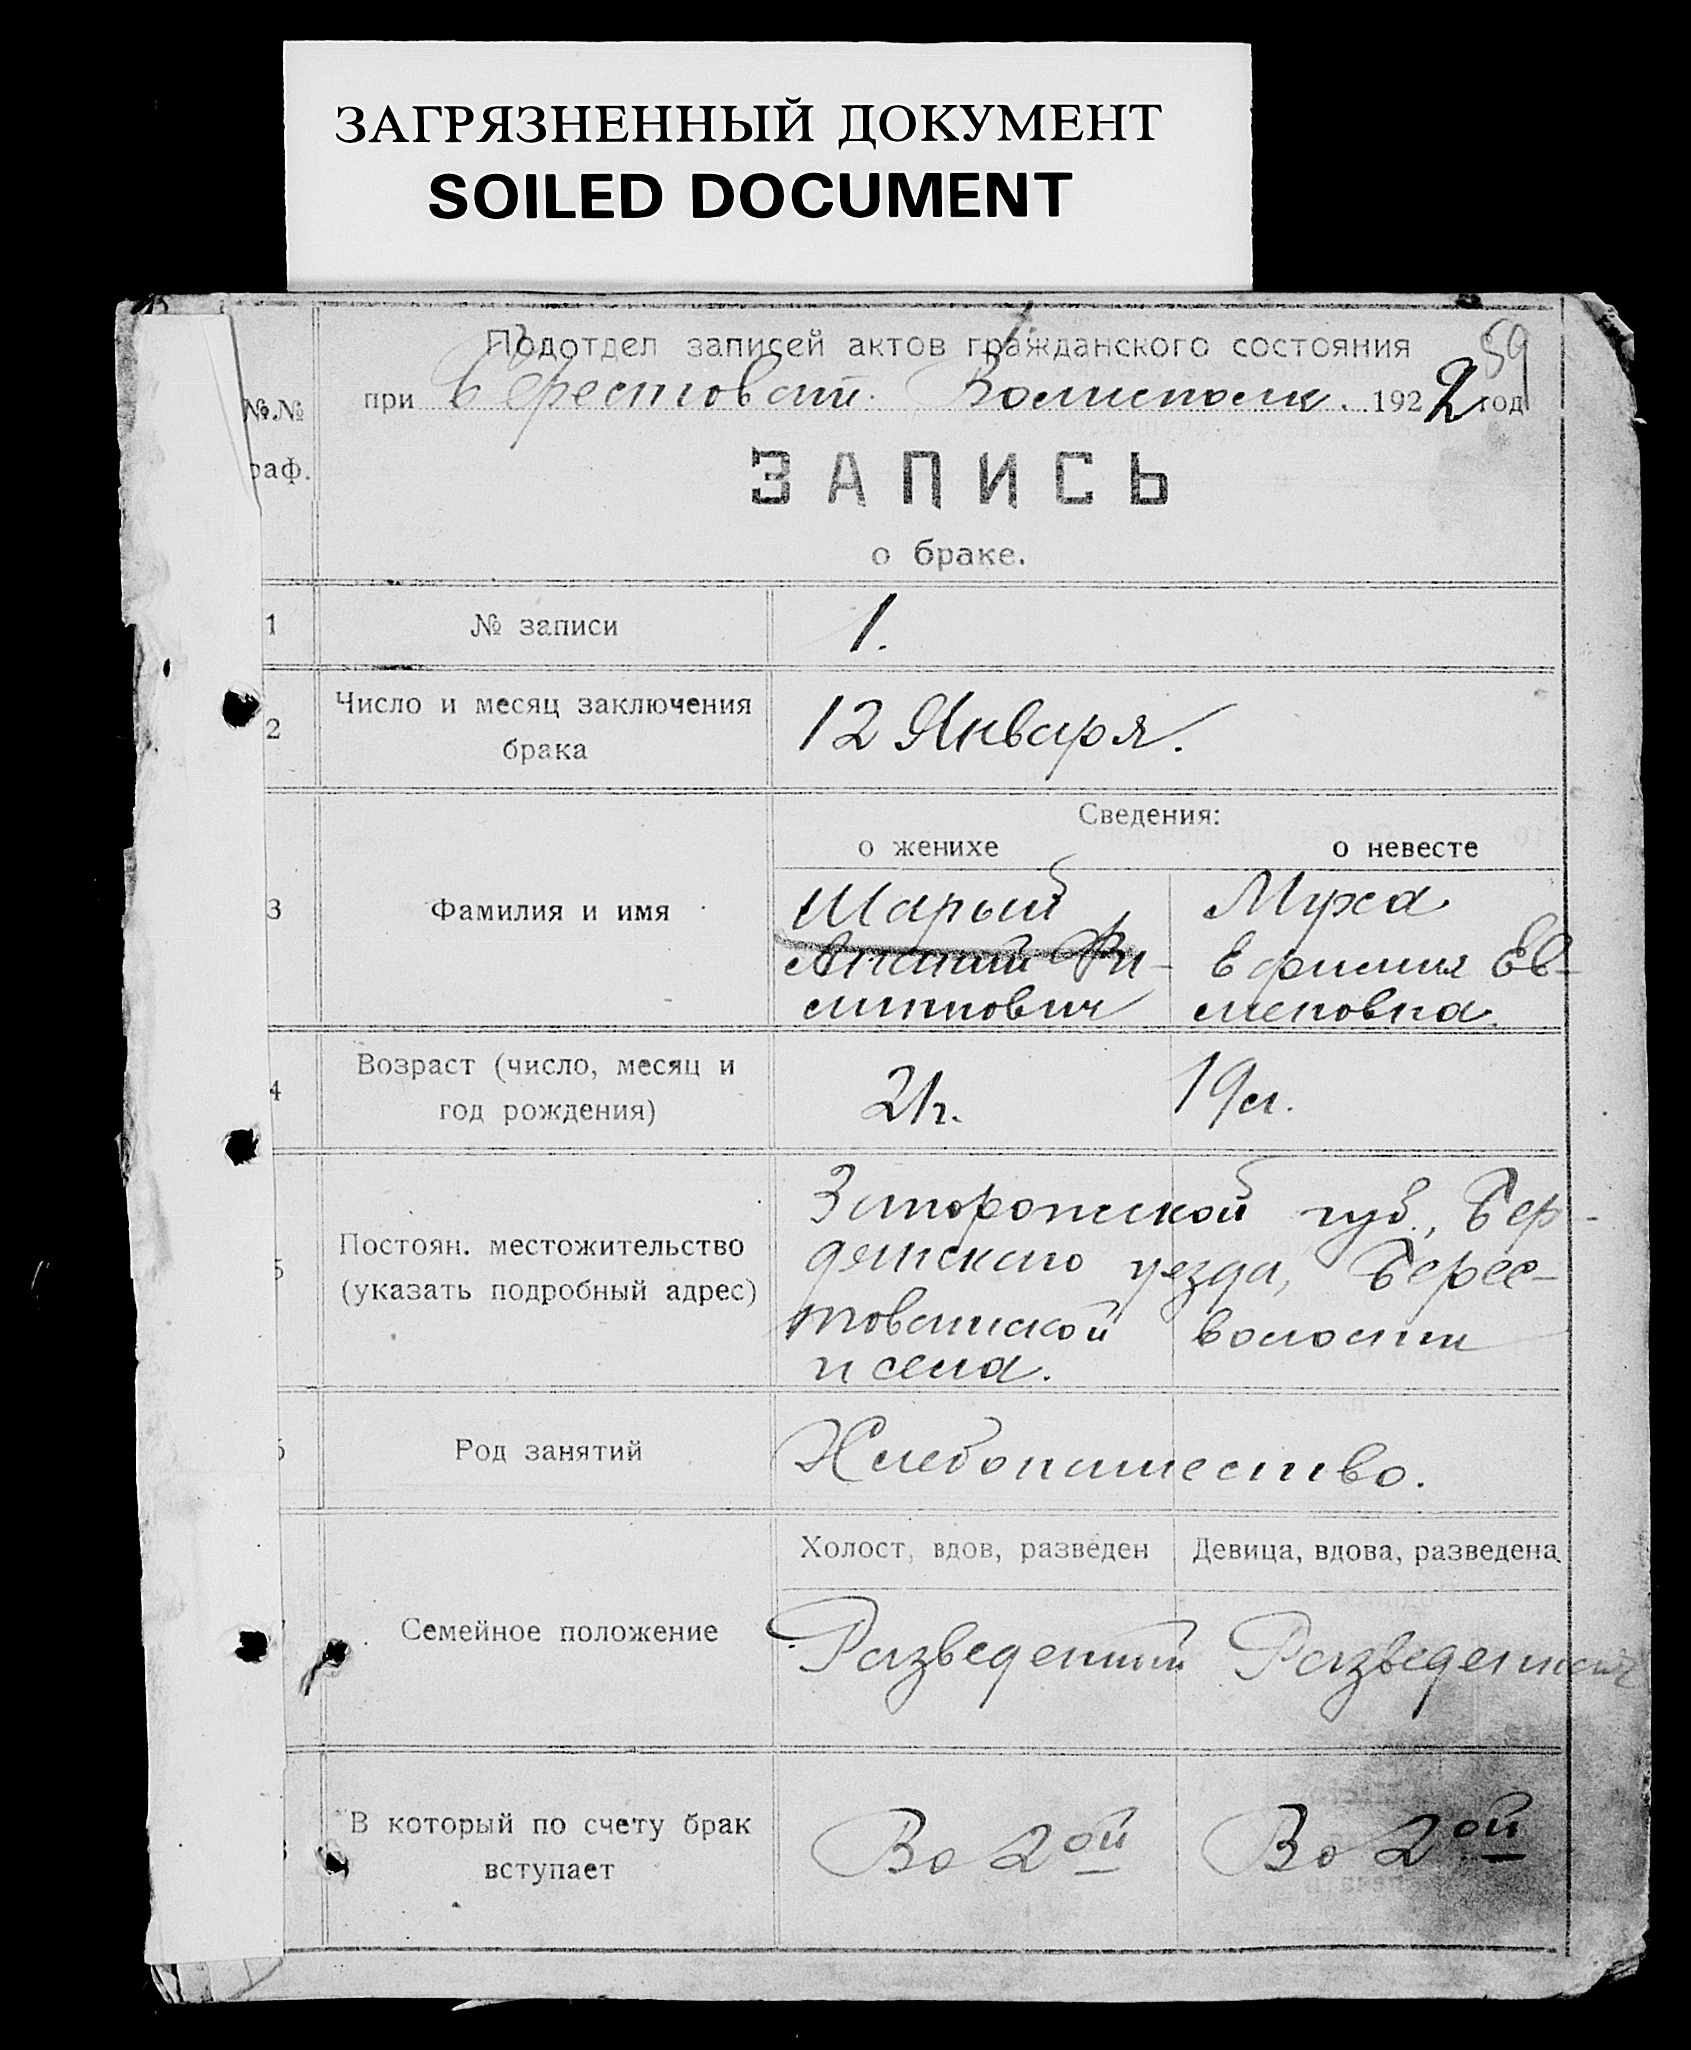 ЗАГРЯЗНЕННЫЙ ДОКУМЕНТ
SOILED DOCUMENT
59
Подотдел записей актов гражданского состояния
при Берестоват. Волисполк. 1922 год
№.№
раф.
ЗАПИСЬ
о браке.
1 № записи 1.
2 Число и месяц заключения
брака 12 Января.
Сведения:
о женихе о невесте
3 Фамилия и имя
Шарый Муха
Ананий Фи- Ефимия Ев-
липпович меновна
4 Возраст (число, месяц и
год рождения) 21 г. 19 л.
5 Постоян. местожительство
(указать подробный адрес)
Запорожской губ., Бер-
дянскаго уезда, Берес-
товатской волости
и села.
Род занятий Хлебопашество.
Холост, вдов, разведен Девица, вдова, разведена
Семейное положение
Разведенный Разведенная
В который по счету брак
вступает Во 2ой Во 2ой